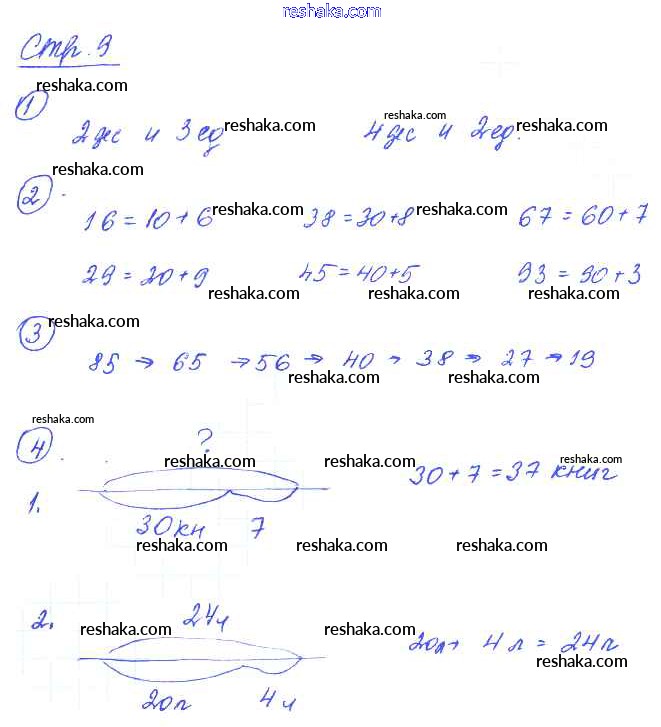 reshaka.com
Стр. 9
reshaka.com
1
2 дес и 3 ед reshaka.com 4 дес и 2 ед. reshaka.com
reshaka.com
2
16 = 10 + 6 reshaka.com 38 = 30 + 8 reshaka.com 67 = 60 + 7
29 = 20 + 9 45 = 40 + 5 93 = 90 + 3
reshaka.com reshaka.com reshaka.com
3 reshaka.com
85 → 65 → 56 → 40 → 38 → 27 → 19
reshaka.com reshaka.com
reshaka.com
4 ?
reshaka.com reshaka.com reshaka.com
1. 30 + 7 = 37 книг
30 кн 7
reshaka.com reshaka.com reshaka.com
2. 24 л
reshaka.com reshaka.com
20 л + 4 л = 24 л
reshaka.com
20 л 4 л
reshaka.com